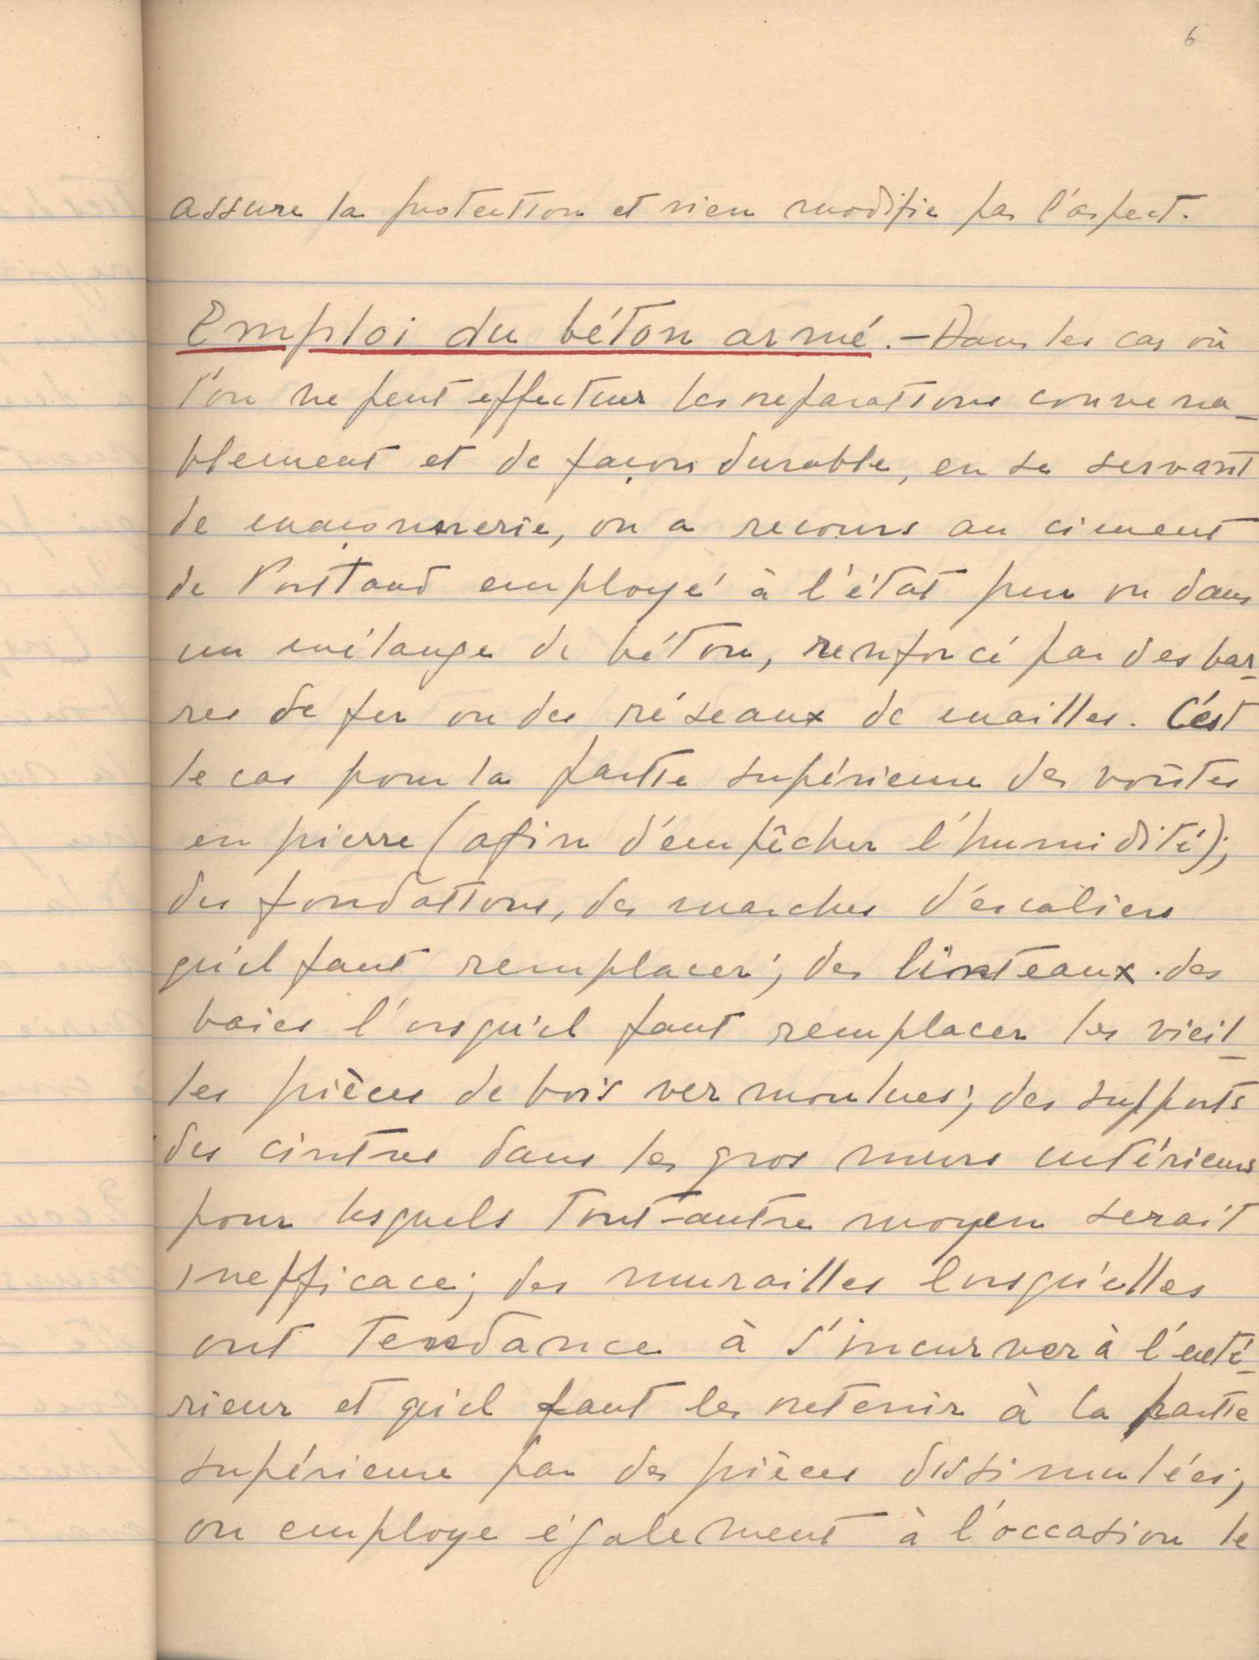 6
assure la protection et rien modifie pas l'aspect.
Emploi du béton armé. - Dans les cas où
l'on ne peut effectuer les reparations convena-
blement et de façon durable, en se servant
de maçonnerie, on a recours au ciment
de Portland employé à l'état pur ou dans
un mélange de béton, renforcé par des bar-
res de fer ou des réseaux de mailles. C'est
le cas pour la partie supérieure des voûtes
en pierre (afin d'empêcher l'humidité);
des fondations, des marches d'escaliers
qu'il faut remplacer; des linteaux des
baies l'orsqu'il faut remplacer les vieil-
les pièces de bois vermoulues; des supports
des cintres dans les gros murs extérieurs
pour lesquels tout-autre moyen serait
inefficace; des murailles lorsqu'elles
ont tendance à s'incurver à l'exté-
rieur et qu'il faut les retenir à la partie
supérieure par des pièces dissimulées;
on employe également à l'occasion le